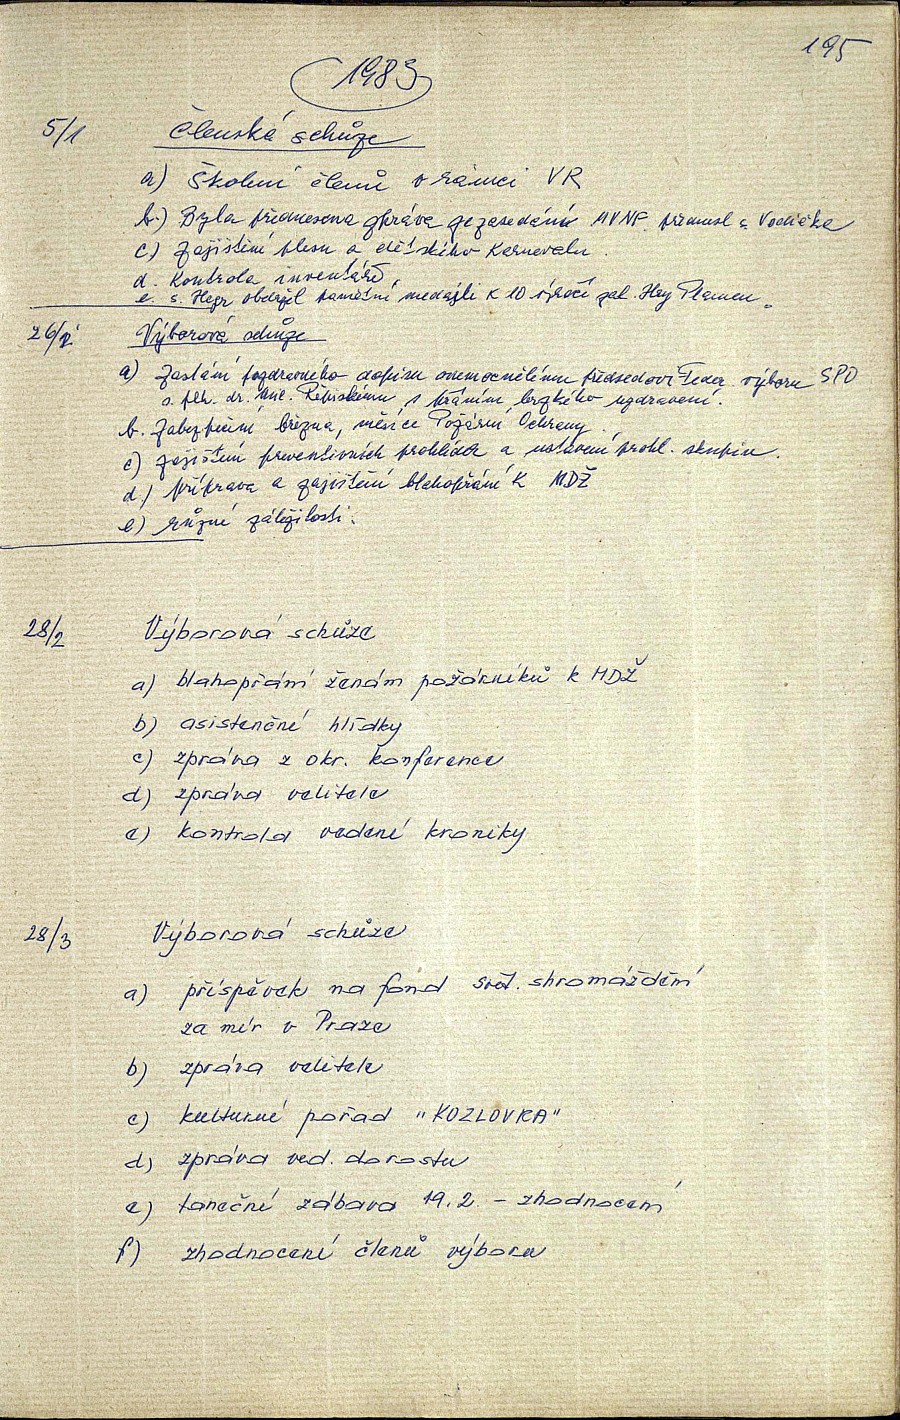 195
1983
5/1 Členská schůze
a) Školení členů v rámci VR
b.) Byla přednesena zpráva ze zasedání MVNF. přednesl s. Vodička
c.) zajištění plesu a dětského Karnevalu.
d. Kontrola inventáře.
e. s. Hegr obdržel pamětní medajli k 10 výročí zal. Hry Plamen.
26/1 Výborová schůze
a) Zaslání pozdravného dopisu onemocnělému předsedovi Feder. výboru SPO
s. plk. dr. s přáním brzkého uzdravení.
b. Zabezpečení března, měsíce Požární Ochrany.
c) zajištění preventivních prohlídek a ustavení prohl. skupin.
d.) příprava a zajištění blahopřání k MDŽ
e) různé záležitosti.
28/2 Výborová schůze
a) blahopřání ženám požárníků k MDŽ
b) asistenčné hlídky
c) zpráva z okr. konference
d) zpráva velitele
e) kontrola vedení kroniky
28/3 Výborová schůze
a) příspěvek na fond svět. shromáždění
za mír v Praze
b) zpráva velitele
c) kulturné pořad "KOZLOVKA"
d) zpráva ved. dorostu
e) taneční zábava 19.2. - zhodnocení
f) zhodnocení členů výboru